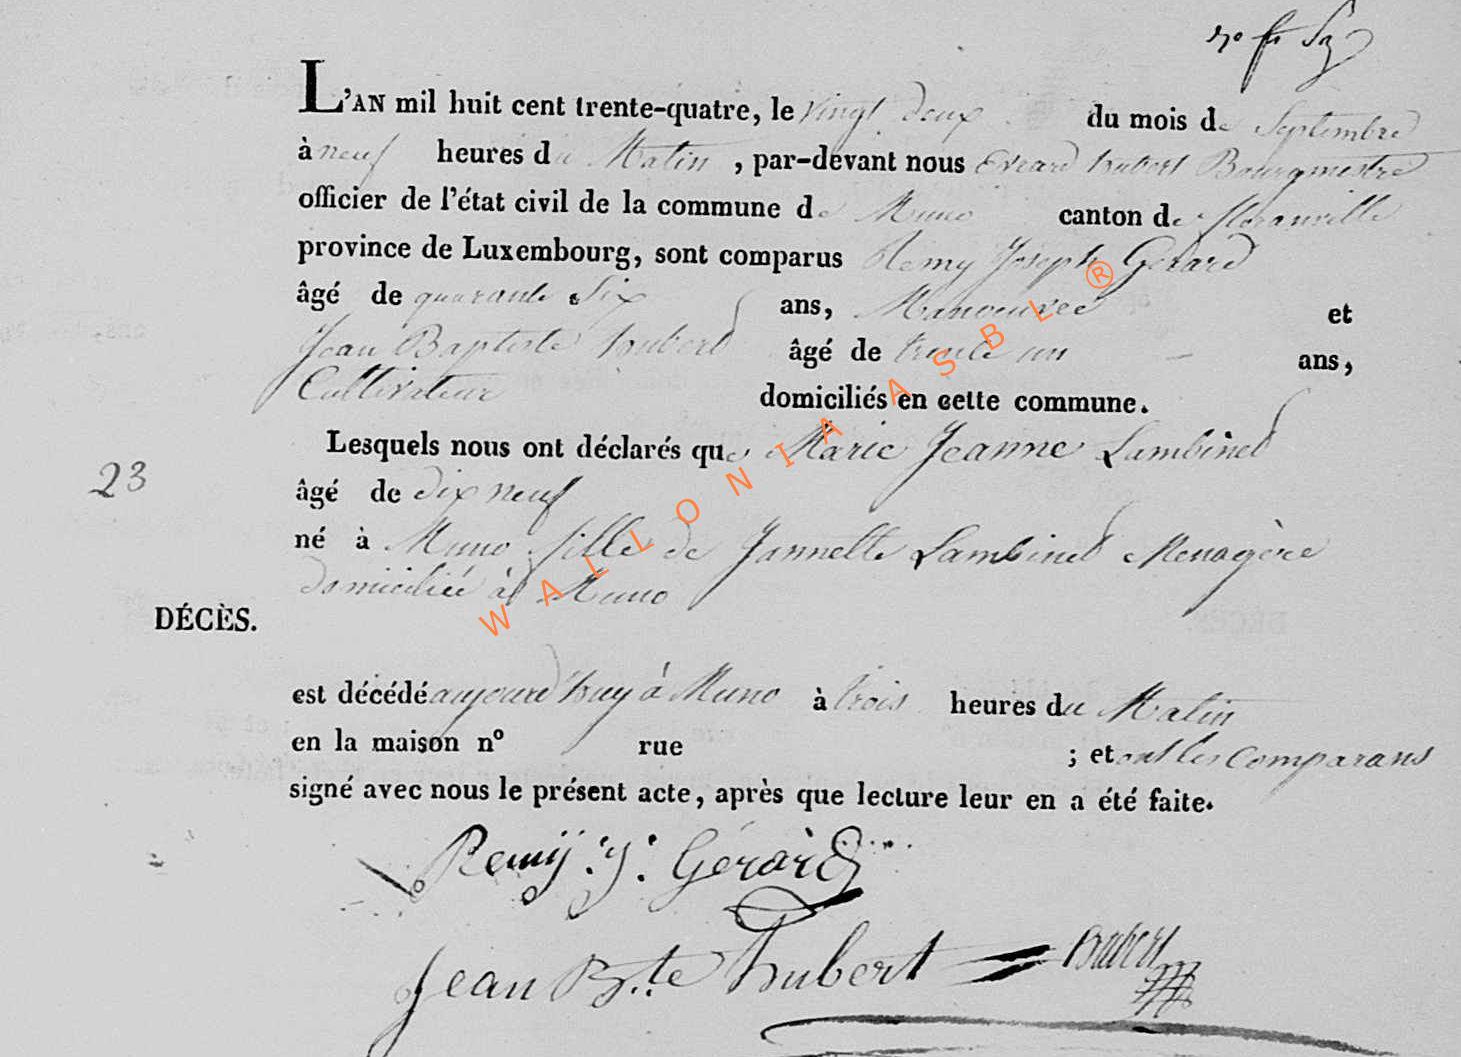 L'AN mil huit cent trente-quatre, le vingt deux du mois de Septembre
à neuf heures du Matin , par-devant nous Evrard hubert Bourgmestre
officier de l'état civil de la commune de Muno canton de floranville
province de Luxembourg, sont comparus Remy Joseph Gérard
âgé de quarante Six ans, Manoeuvre et
Jean Baptiste hubert âgé de trente un ans,
Cultivateur domiciliés en cette commune.
Lesquels nous ont déclarés que Marie Jeanne Lambinet
23
âgé de dix neuf
né à Muno fille de Jannette Lambinet Menagère
domiciliée à Muno
DÉCÈS.
est décédé aujourd'huy à Muno à trois heures du Matin
en la maison nº rue ; et ont les comparans
signé avec nous le présent acte, après que lecture leur en a été faite.
Remy : J : Gérard
Jean Bte hubert Hubert
WALLONIA ASBL ®